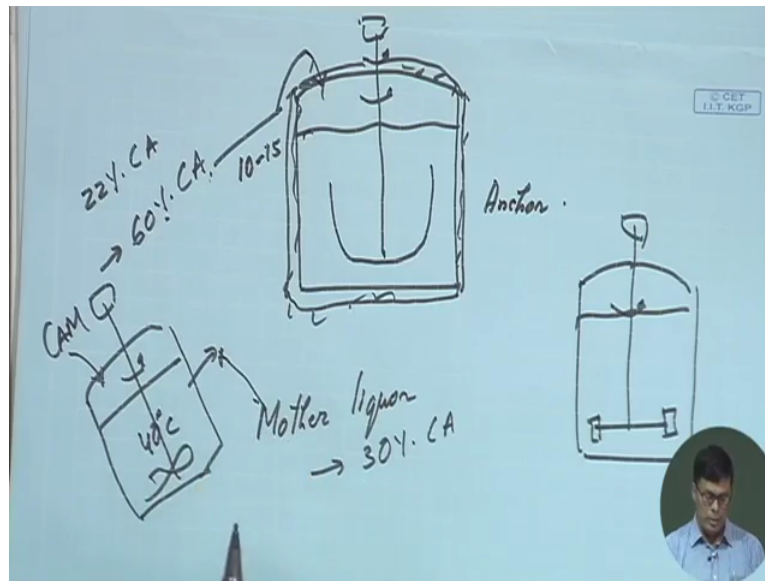 © CET
I.I.T. KGP
22%. CA
→ 60%. CA.
10-15
Anchor.
CAM
40°C
Mother liquor
→ 30%. CA